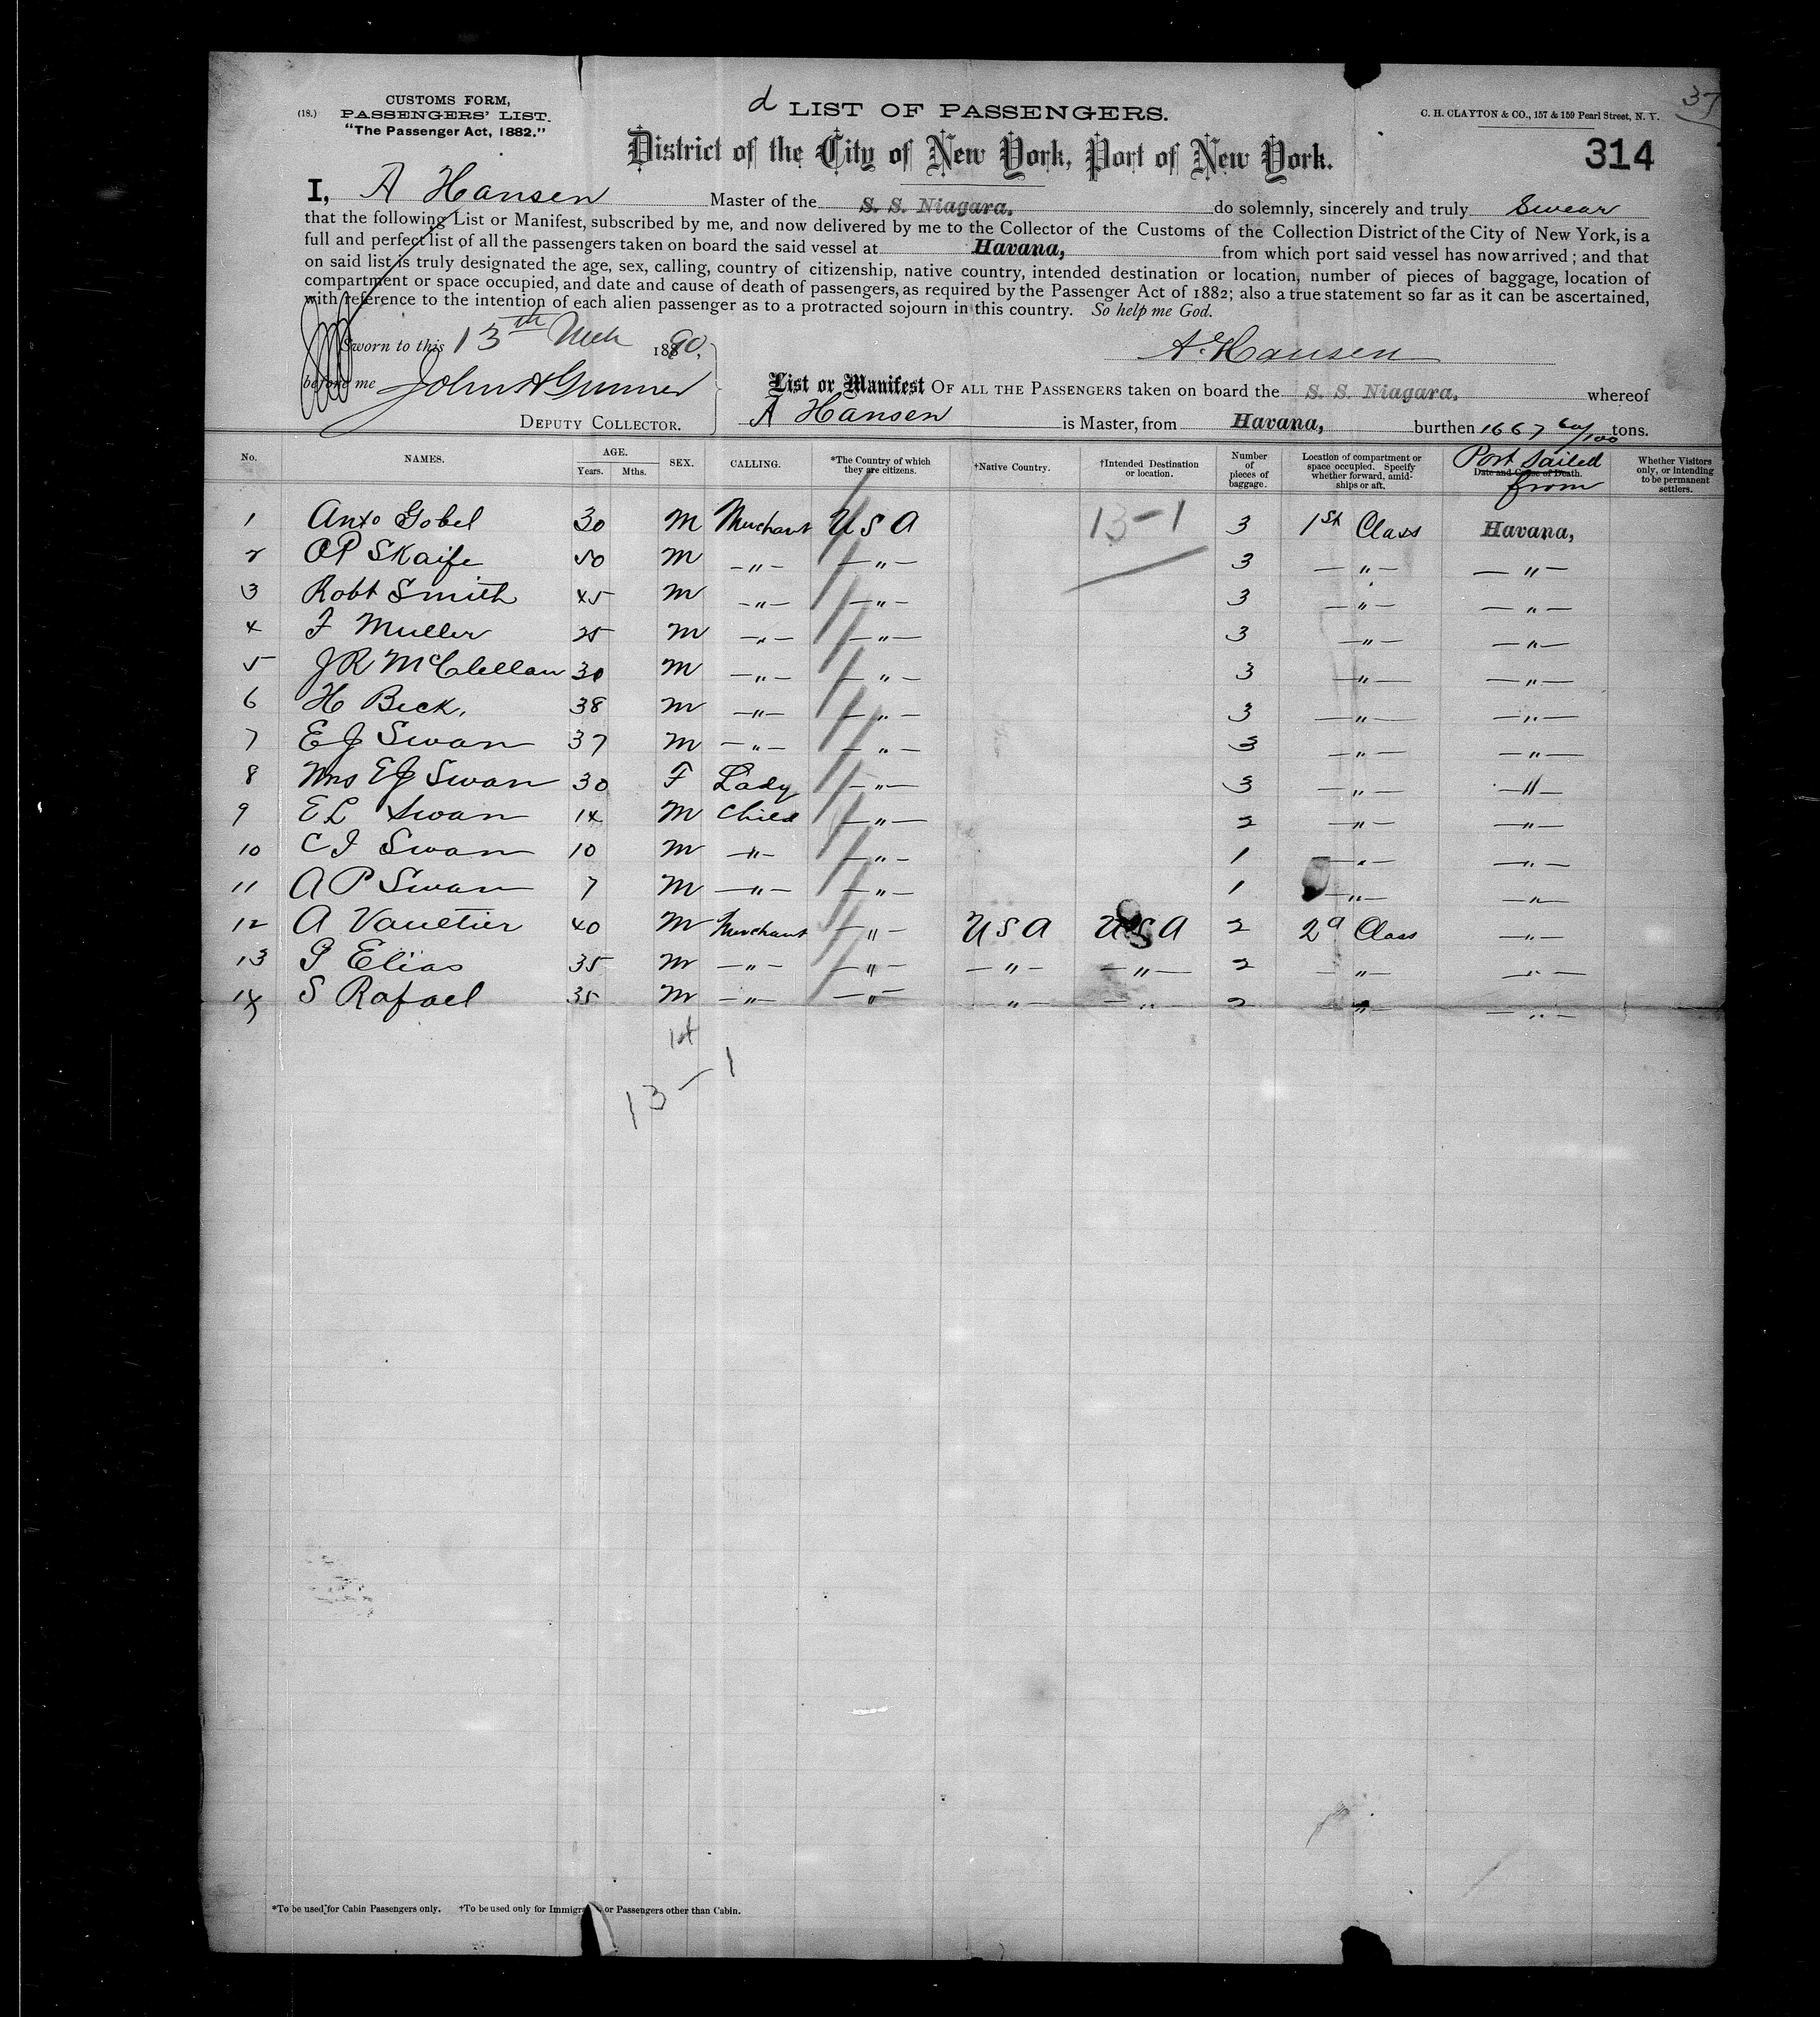 37
(18.) CUSTOMS FORM,
PASSENGERS' LIST.
"The Passenger Act, 1882."
d LIST OF PASSENGERS.
C. H. CLAYTON & CO., 157 & 159 Pearl Street, N. Y.
District of the City of New York, Port of New York.
314
I, A Hansen Master of the S. S. Niagara, do solemnly, sincerely and truly Swear
that the following List or Manifest, subscribed by me, and now delivered by me to the Collector of the Customs of the Collection District of the City of New York, is a
full and perfect list of all the passengers taken on board the said vessel at Havana, from which port said vessel has now arrived; and that
on said list is truly designated the age, sex, calling, country of citizenship, native country, intended destination or location, number of pieces of baggage, location of
compartment or space occupied, and date and cause of death of passengers, as required by the Passenger Act of 1882; also a true statement so far as it can be ascertained,
with reference to the intention of each alien passenger as to a protracted sojourn in this country. So help me God.
Sworn to this 13th Mch 1890,
A. Hansen
before me John A Gunner
DEPUTY COLLECTOR.
List or Manifest OF ALL THE PASSENGERS taken on board the S. S. Niagara, whereof
A Hansen is Master, from Havana, burthen 1667 60/100 tons.
No. NAMES. AGE. Years. Mths. SEX. CALLING. *The Country of which they are citizens. †Native Country. †Intended Destination or location. Number of pieces of baggage. Location of compartment or space occupied. Specify whether forward, amidships or aft. Date and Cause of Death. Port Sailed from Whether Visitors only, or Intending to be permanent settlers.
1 Anto Gobel 30 M Merchant U S A 13-1 3 1st Class Havana,
2 O P Skaife 50 M —"— —"— 3 —"— —"—
3 Robt Smith 45 M —"— —"— 3 —"— —"—
4 F Muller 25 M —"— —"— 3 —"— —"—
5 J R McClellan 30 M —"— —"— 3 —"— —"—
6 H Beck, 38 M —"— —"— 3 —"— —"—
7 E J Swan 37 M —"— —"— 3 —"— —"—
8 Mrs E J Swan 30 F Lady —"— 3 —"— —"—
9 E L Swan 14 M Child —"— 2 —"— —"—
10 C I Swan 10 M —"— —"— 1 —"— —"—
11 A P Swan 7 M —"— —"— 1 —"— —"—
12 A Vaultier 40 M Merchant —"— U S A U S A 2 2d Class —"—
13 P Elias 35 M —"— —"— —"— —"— 2 —"— —"—
14 S Rafael 35 M —"— —"— —"— —"— 2 —"— —"—
13-1
*To be used for Cabin Passengers only. †To be used only for Immigra or Passengers other than Cabin.